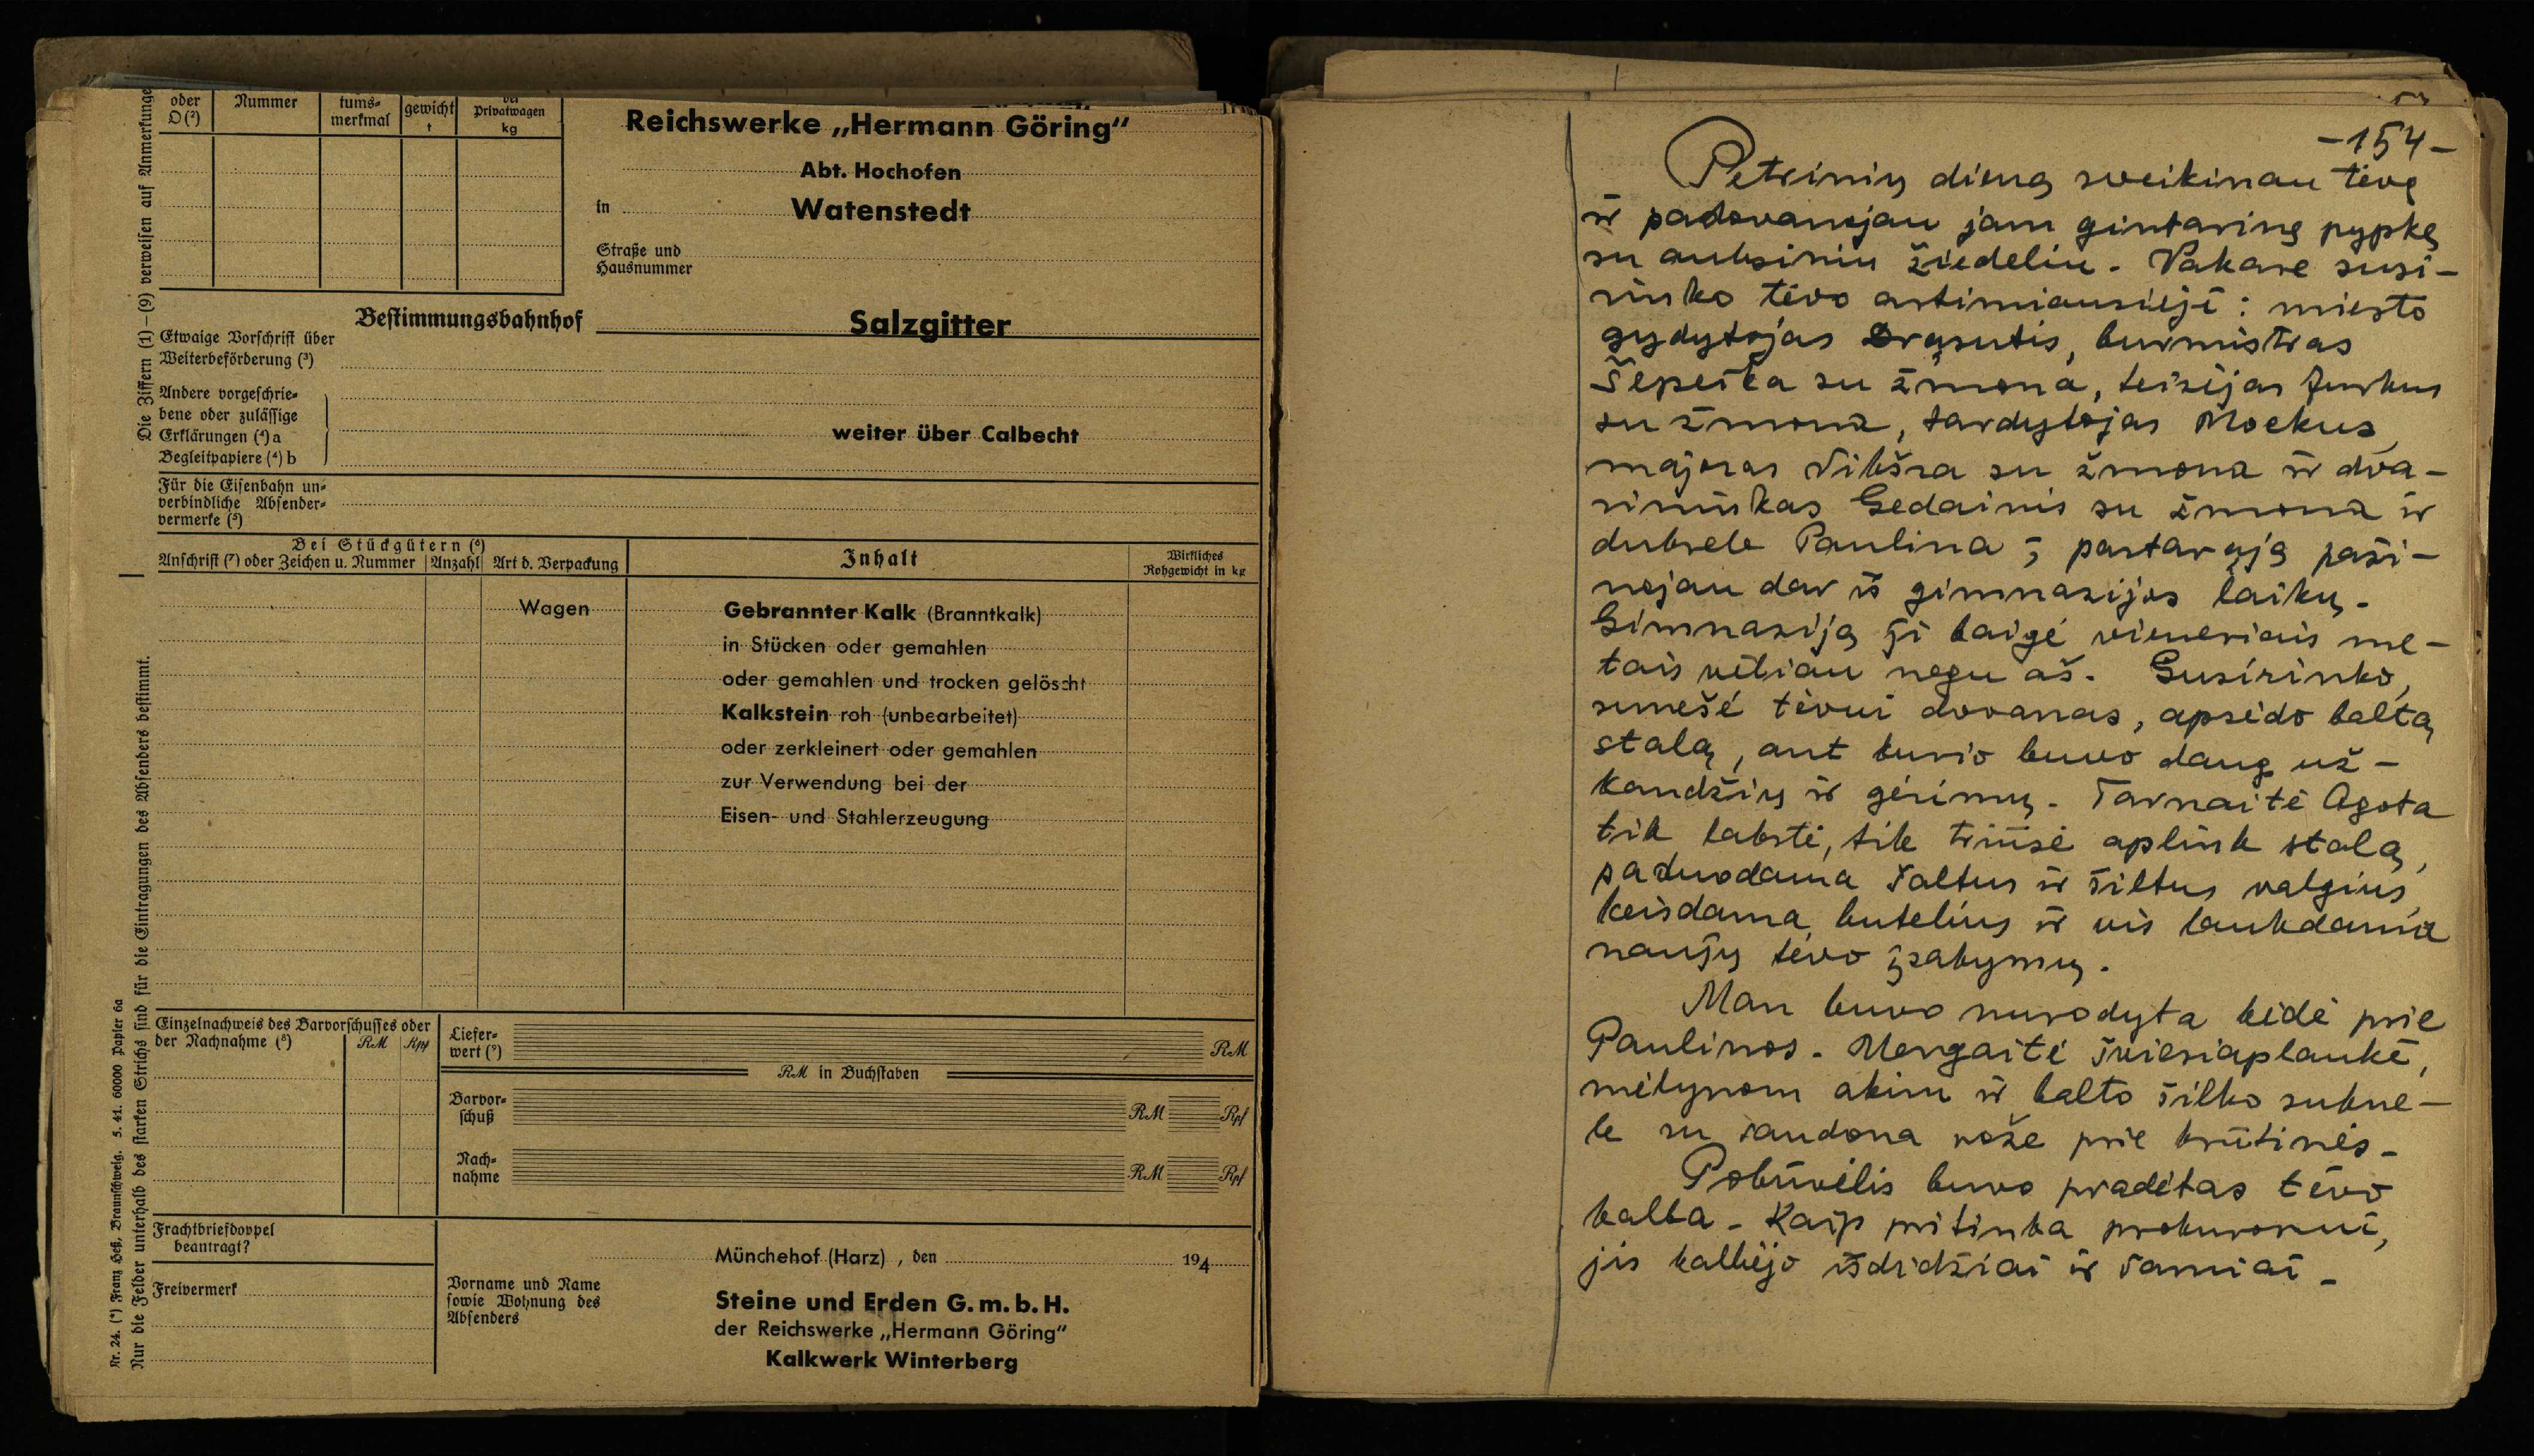 oder
D (²)
Nummer
tums-
merkmal
gewicht
t
Privatwagen
kg
Reichswerke „Hermann Göring“
Abt. Hochofen
in Watenstedt
Straße und
Hausnummer
Bestimmungsbahnhof Salzgitter
Etwaige Vorschrift über
Weiterbeförderung (³)
Andere vorgeschrie-
bene oder zulässige
Erklärungen (⁴) a
Begleitpapiere (⁴) b
weiter über Calbecht
Für die Eisenbahn un-
verbindliche Absender-
vermerke (⁵)
Bei Stückgütern (⁶)
Anschrift (⁷) oder Zeichen u. Nummer
Anzahl
Art d. Verpackung
Inhalt
Wirkliches
Rohgewicht in kg
Wagen
Gebrannter Kalk (Branntkalk)
in Stücken oder gemahlen
oder gemahlen und trocken gelöscht
Kalkstein roh (unbearbeitet)
oder zerkleinert oder gemahlen
zur Verwendung bei der
Eisen- und Stahlerzeugung
Einzelnachweis des Barvorschusses oder
der Nachnahme (⁸)
RM
Rpf
Liefer-
wert (⁹)
RM
RM in Buchstaben
Barvor-
schuß
RM
Rpf
Nach-
nahme
RM
Rpf
Frachtbriefdoppel
beantragt?
Freivermerk
Münchehof (Harz), den 194
Vorname und Name
sowie Wohnung des
Absenders
Steine und Erden G. m. b. H.
der Reichswerke „Hermann Göring“
Kalkwerk Winterberg
Die Ziffern (1)–(9) verweisen auf Anmerkunge
Nur die Felder unterhalb des starken Strichs sind für die Eintragungen des Absenders bestimmt.
Nr. 24. (*) Franz Heß, Braunschweig. 5. 41. 60000 Papier 6a
-154-
Petrinių dieną sveikinau tėvą
ir padovanojau jam gintarinę pypkę
su auksiniu žiedeliu. Vakare susi-
rinko tėvo artimiausieji: miesto
gydytojas Drąsutis, burmistras
Šepeika su žmona, teisėjas Jurkus
su žmona, tardytojas Mockus,
majoras Vikšra su žmona ir dva-
rininkas Gedainis su žmona ir
dukrele Paulina; pastarąją paži-
nojau dar iš gimnazijos laikų.
Gimnaziją ji baigė vieneriais me-
tais vėliau negu aš. Susirinko,
sunešė tėvui dovanas, apsėdo baltą
stalą, ant kurio buvo daug už-
kandžių ir gėrimų. Tarnaitė Agota
tik lakstė, tik triūsė aplink stalą,
paduodama šaltus ir šiltus valgius,
keisdama butelius ir vis laukdama
naujų tėvo įsakymų.
Man buvo nurodyta kėdė prie
Paulinos. Mergaitė šviesiaplaukė,
mėlynom akim ir balto šilko sukne-
le su raudona rože prie krūtinės.
Pobūvėlis buvo pradėtas tėvo
kalba. Kaip pritinka prokurorui,
jis kalbėjo išdidžiai ir ramiai.